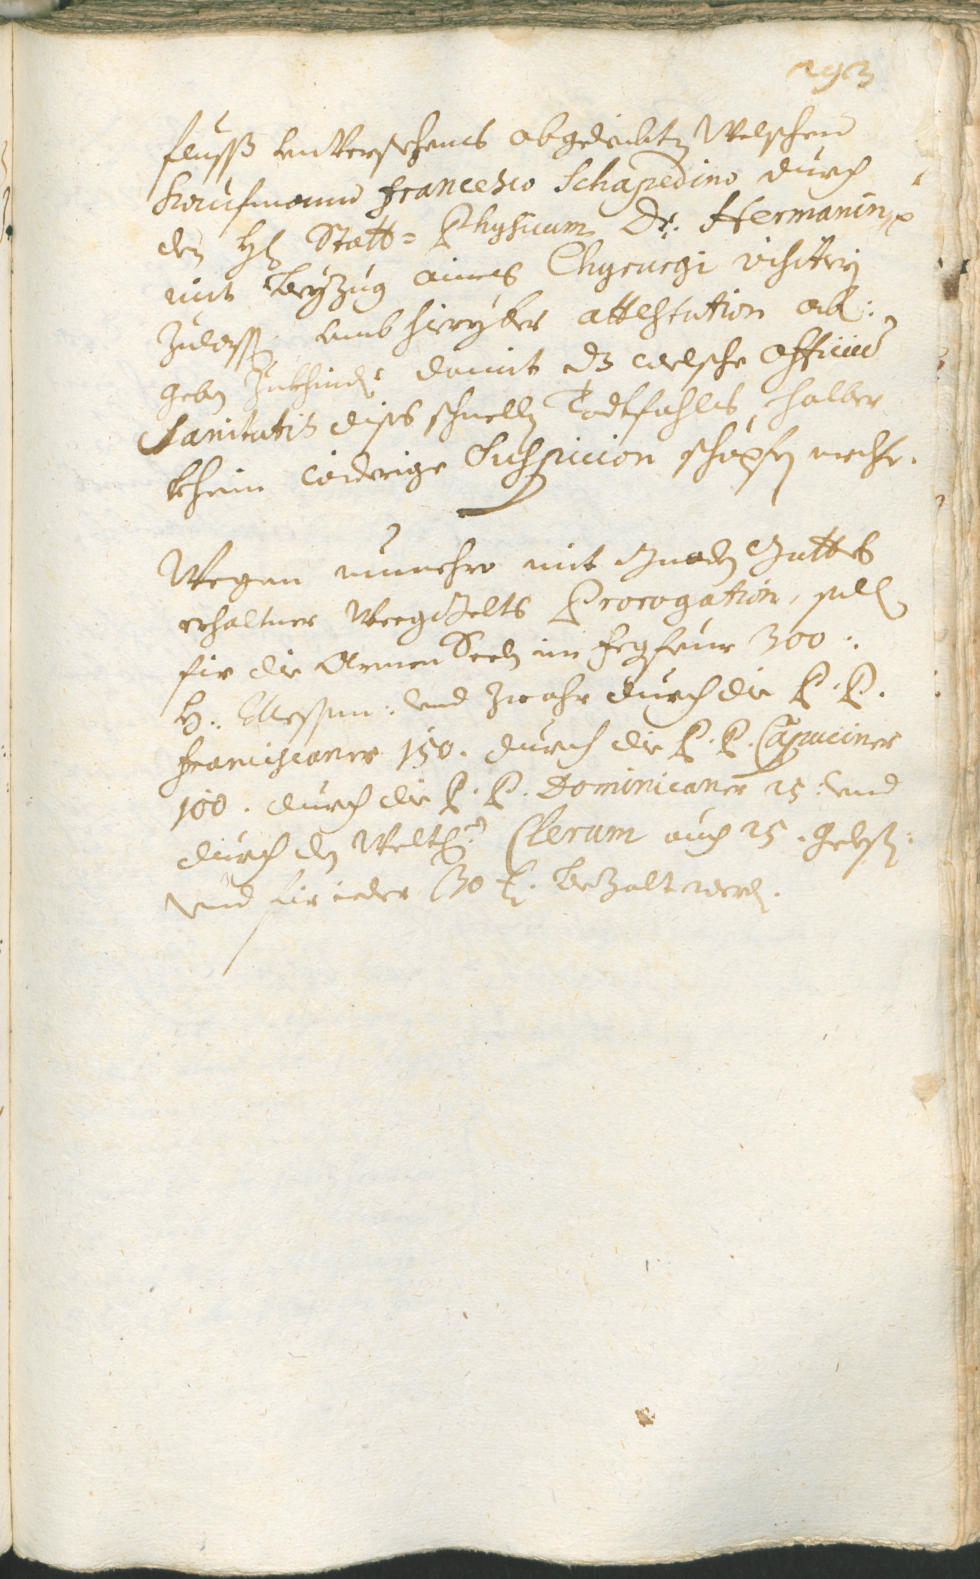 293
fluss unversehens abgeleibten Welschen
Kaufmann Francesco Schapedino durch
den H: Statt= Physicum Dr: Hermanin
mit Beyzug aines Chyrurgi visitirn
zulassen umb hieryber attestation ab:
geben zukhinden damit dz welsche Officium
Sanitatis diss schnellen Todtfahls halber
khein widerige Suspicion schöpfen mechte.
Wegen nunmehro mit Gnaden Gottes
erhaltner Weggelts Prorogation, sollen
fir die Armen Seelen im Fegfeur 300:
H: Messen: und zwahr durch die P. P.
Franciscaner 150. durch die P. P. Capuciner
100. durch die P. P. Dominicaner 25: und
durch den Weltl: Clerum auch 25. gelesen:
und fir ieder 30 k. bezalt werden.